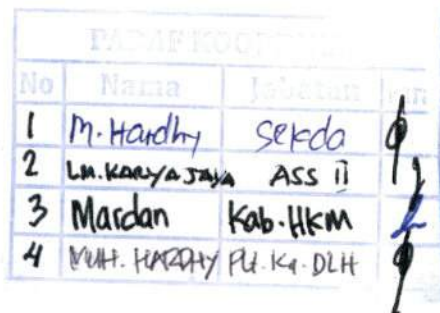 PARAF KOORDINASI
No Nama Jabatan
1 M. Hardhy Sekda
2 LM. KARYA JAYA ASS II
3 Mardan Kab. HKM
4 MUH. HARDHY Plt. Ka. DLH